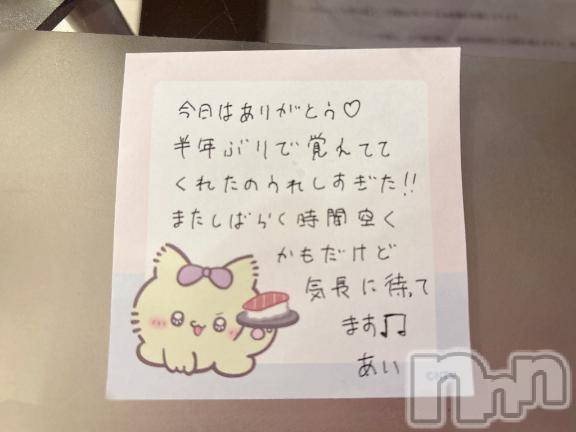 今日はありがとう♡
半年ぶりで覚えてて
くれたのうれしすぎた!!
またしばらく時間空く
かもだけど
気長に待って
ます♫
あい
nnn